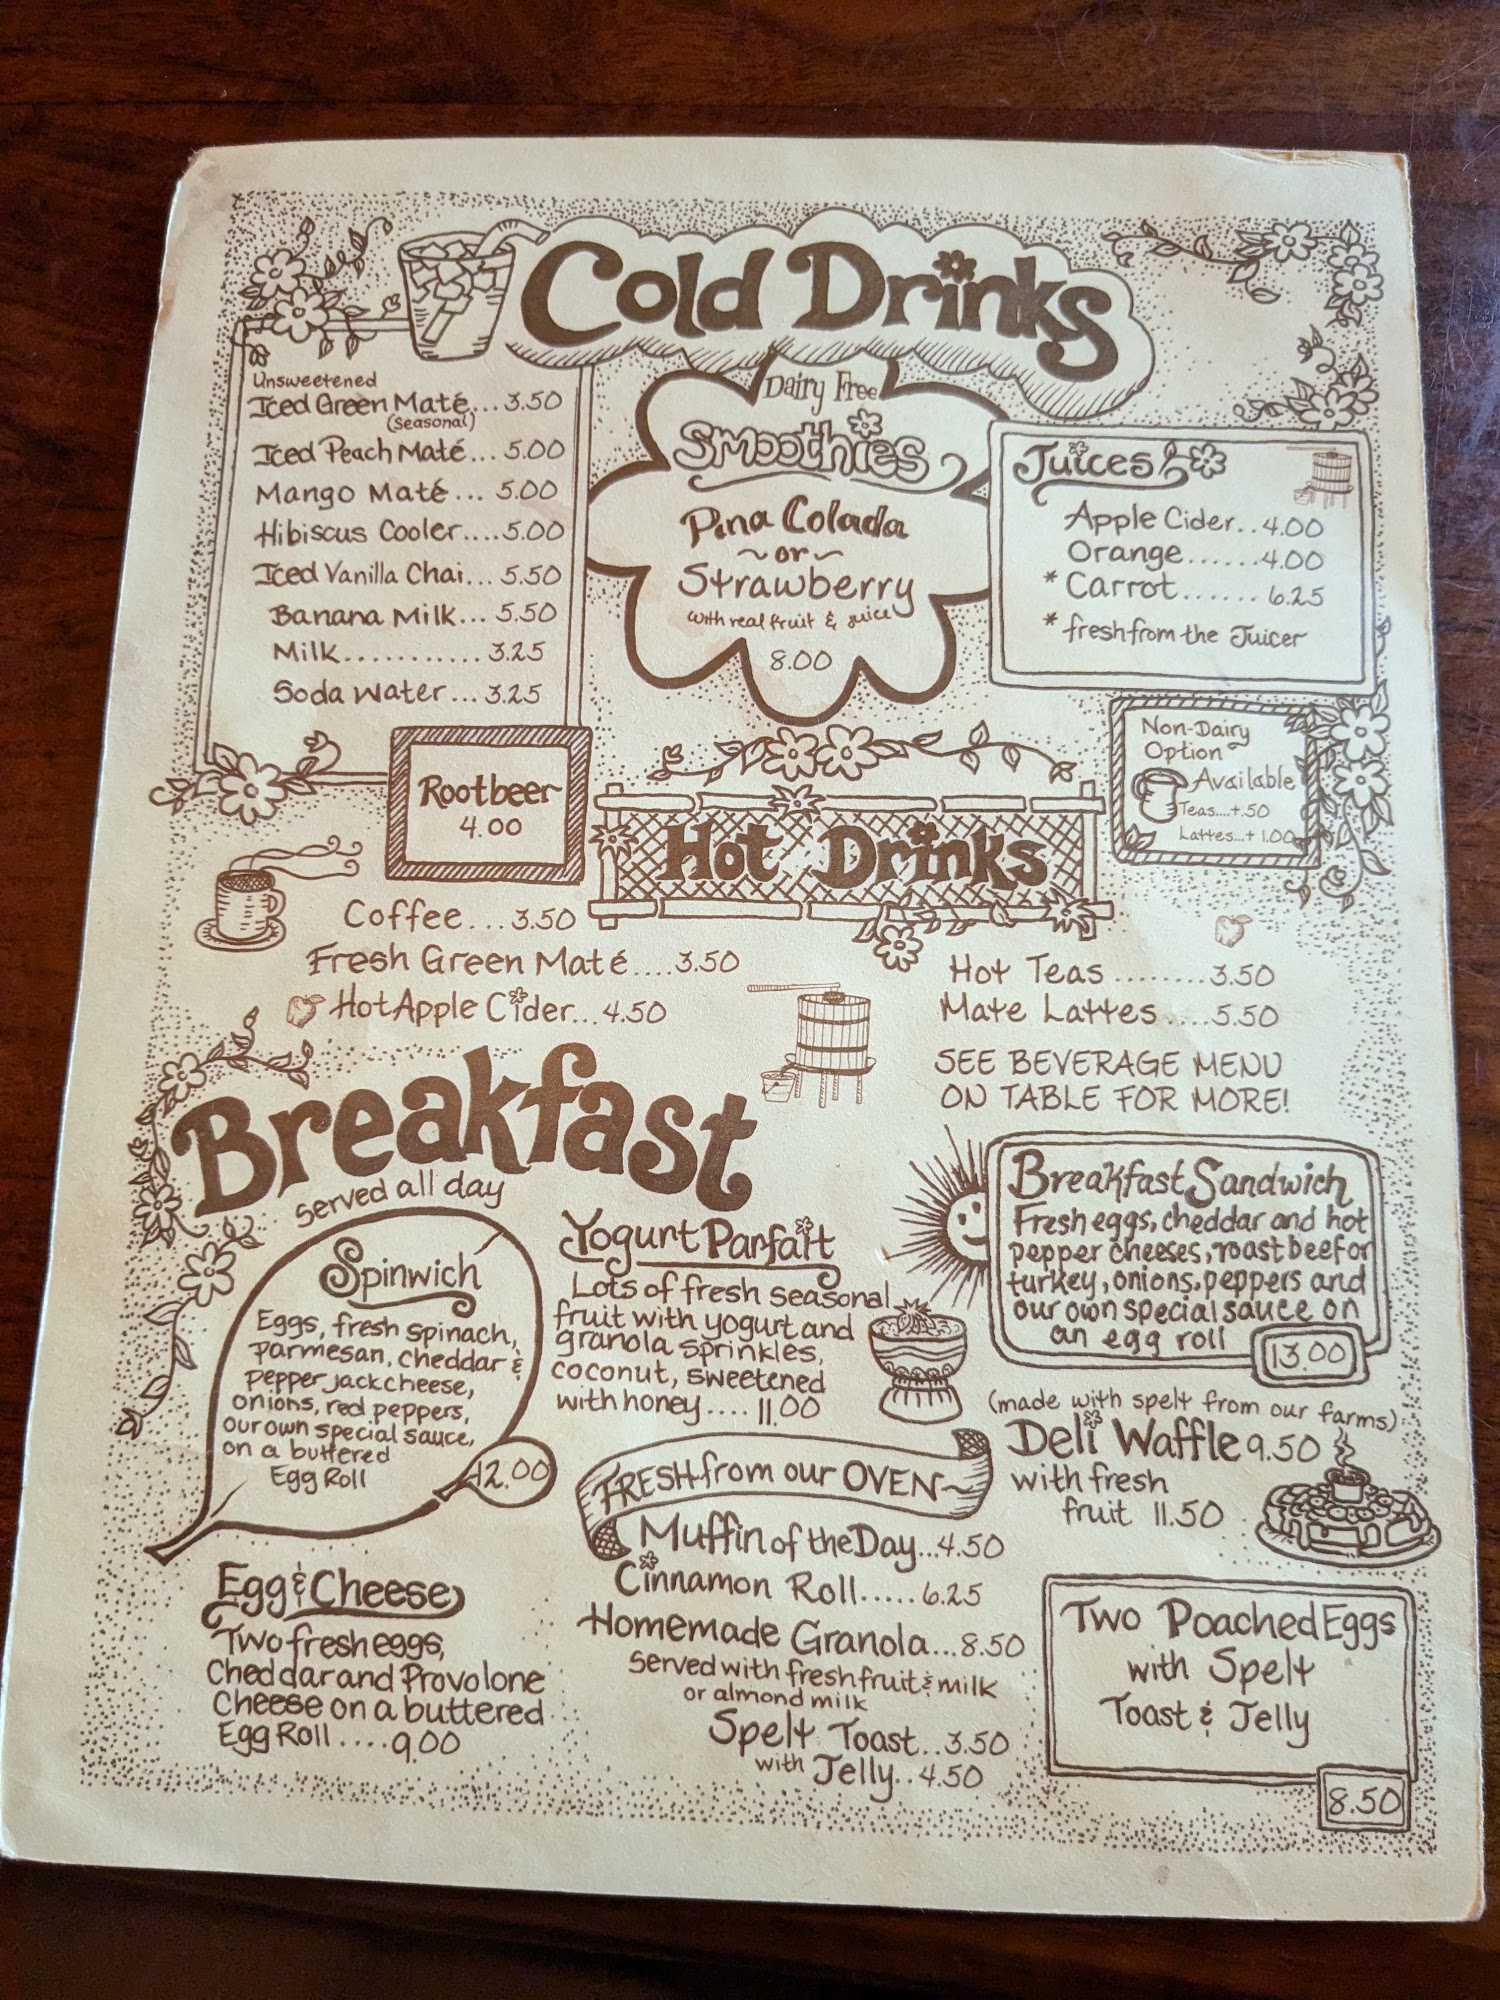 Cold Drinks
Unsweetened
Iced Green Maté...3.50
(seasonal)
Iced Peach Maté...5.00
Mango Maté...5.00
Hibiscus Cooler....5.00
Iced Vanilla Chai...5.50
Banana Milk...5.50
Milk...........3.25
Soda Water...3.25
Rootbeer
4.00
Dairy Free
Smoothies
Pina Colada
~or~
Strawberry
with real fruit & juice
8.00
Juices
Apple Cider..4.00
Orange......4.00
*Carrot......6.25
*fresh from the Juicer
Non-Dairy
Option
Available
Teas....+.50
Lattes...+1.00
Hot Drinks
Coffee...3.50
Fresh Green Maté....3.50
Hot Apple Cider...4.50
Hot Teas........3.50
Mate Lattes.....5.50
SEE BEVERAGE MENU
ON TABLE FOR MORE!
Breakfast
served all day
Spinwich
Eggs, fresh spinach,
parmesan, cheddar &
pepper jack cheese,
onions, red peppers,
our own special sauce,
on a buttered
Egg Roll
12.00
Yogurt Parfait
Lots of fresh seasonal
fruit with yogurt and
granola sprinkles,
coconut, sweetened
with honey....11.00
Breakfast Sandwich
Fresh eggs, cheddar and hot
pepper cheeses, roast beef or
turkey, onions, peppers and
our own special sauce on
an egg roll
13.00
(made with spelt from our farms)
Deli Waffle 9.50
with fresh
fruit 11.50
FRESH from our OVEN~
Muffin of the Day...4.50
Cinnamon Roll.....6.25
Homemade Granola...8.50
served with fresh fruit & milk
or almond milk
Spelt Toast..3.50
with Jelly..4.50
Egg & Cheese
Two fresh eggs,
Cheddar and Provolone
Cheese on a buttered
Egg Roll....9.00
Two Poached Eggs
with Spelt
Toast & Jelly
8.50